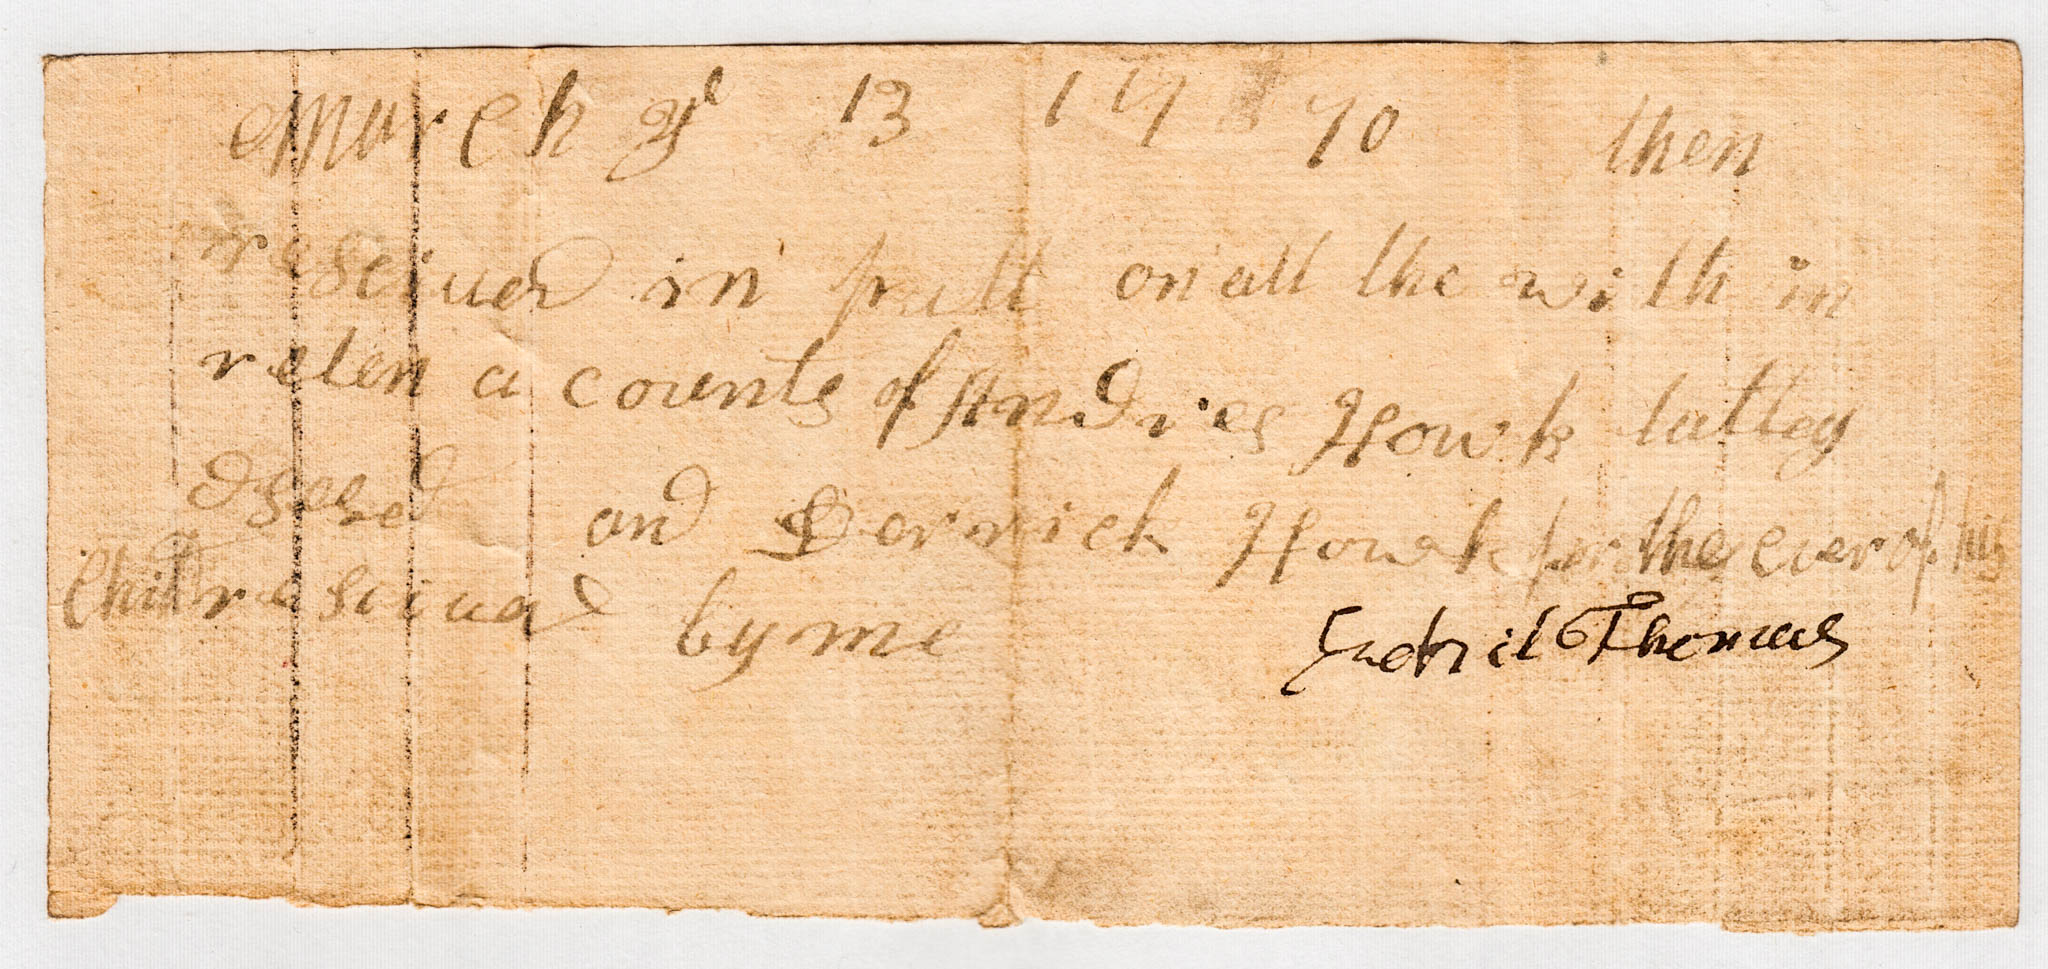 March ye 13 1 17 70 then
reseiued in full on all the with in
reten a counts of Andries Howk lattey
dsesed and Derrick Howk for the over of his
Child reseiued by me Gabriel Thomas